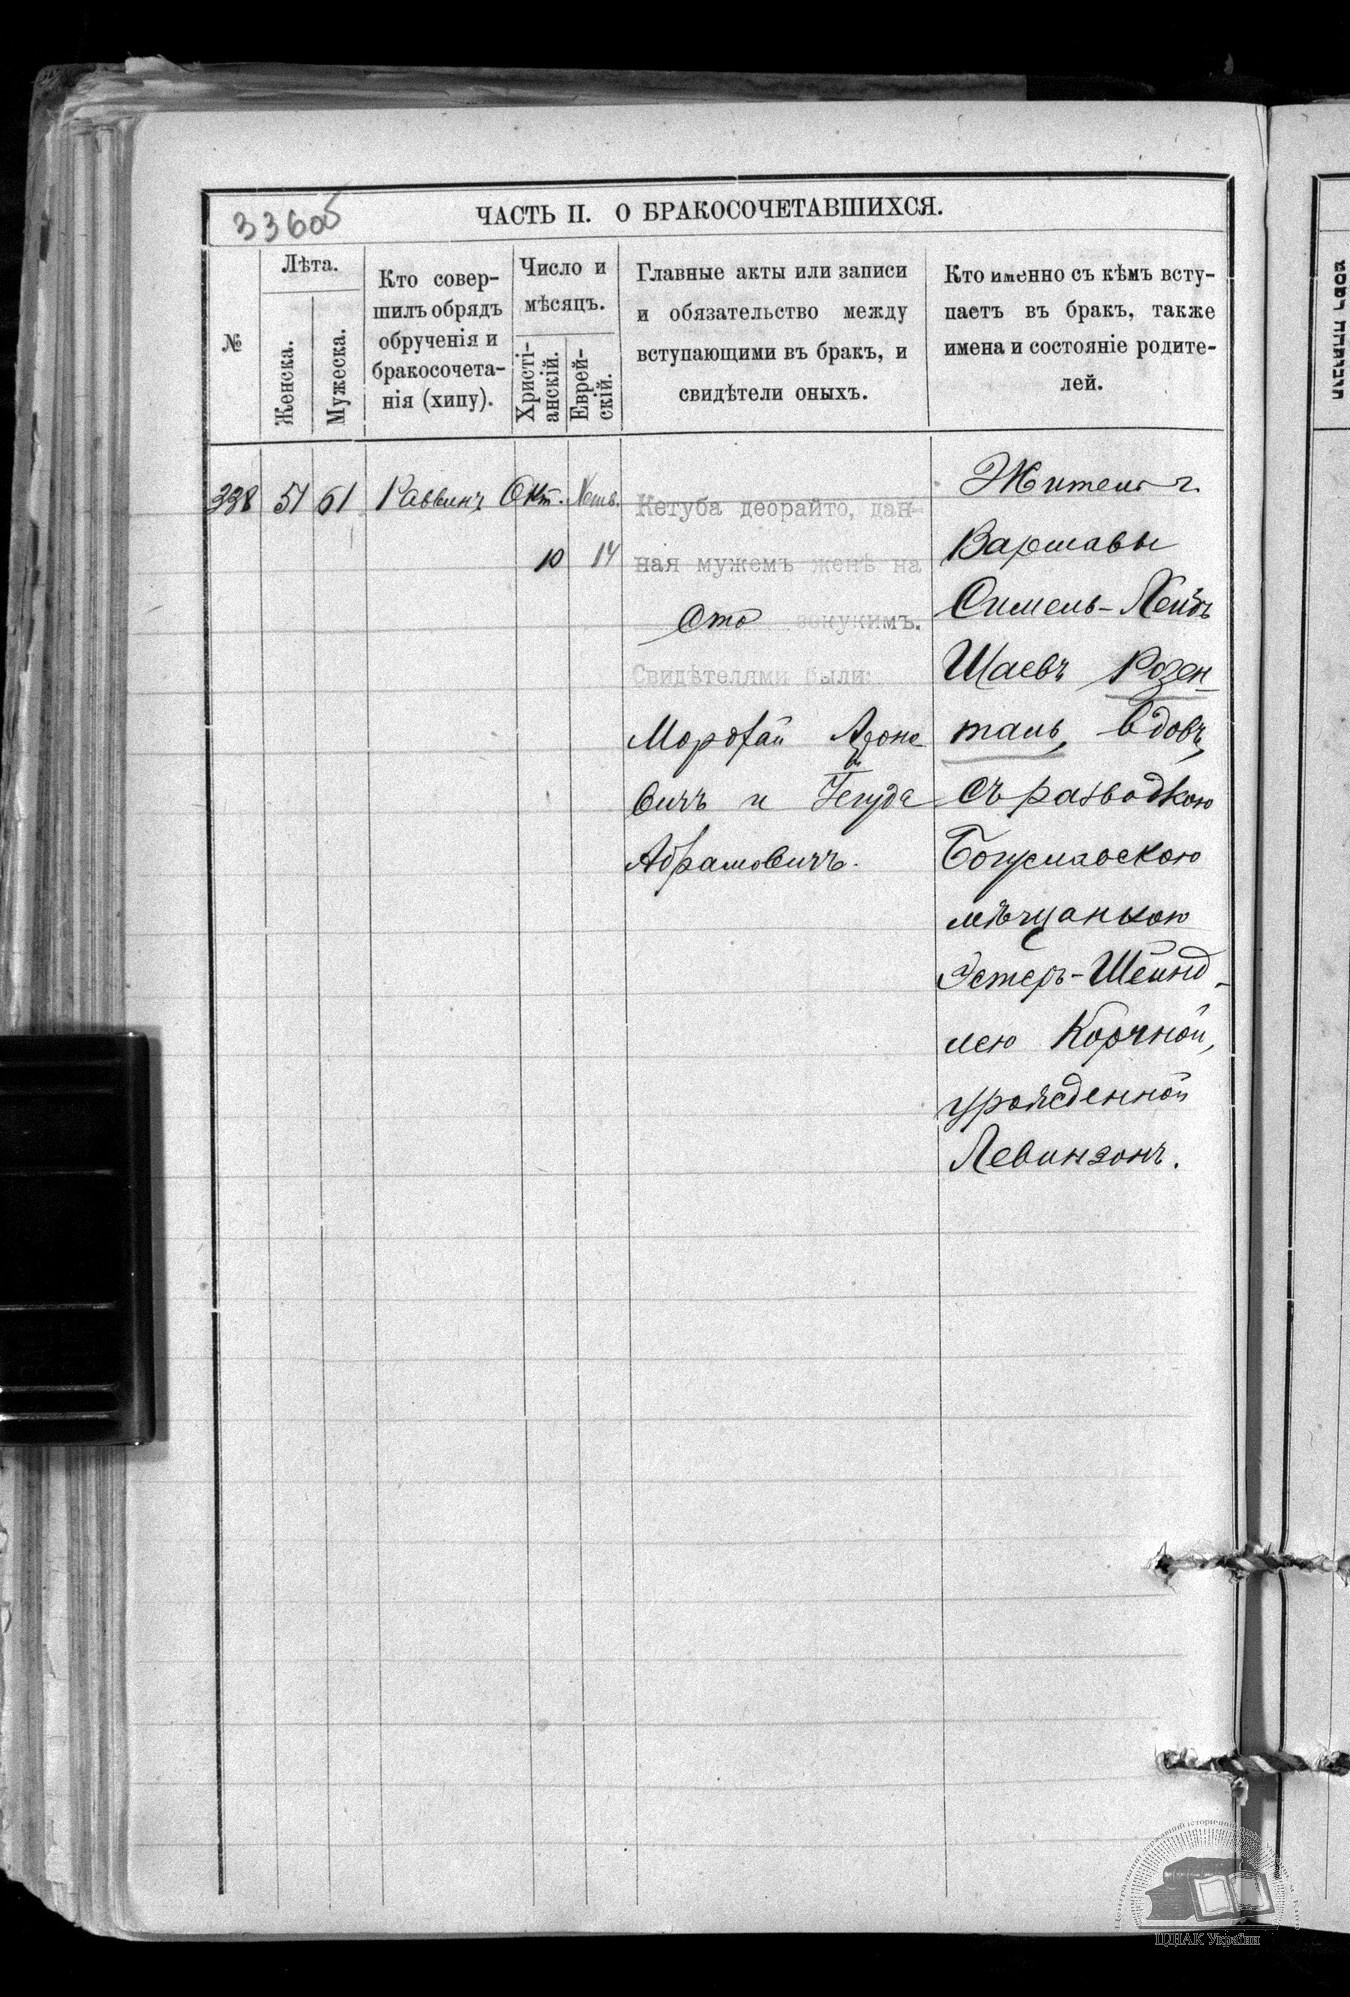 33605
ЧАСТЬ II. О БРАКОСОЧЕТАВШИХСЯ.
№
Лѣта.
Женска.
Мужеска.
Кто совер-
шилъ обрядъ
обрученія и
бракосочета-
нія (хипу).
Число и
мѣсяцъ.
Христі-
анскій.
Еврей-
скій.
Главные акты или записи
и обязательство между
вступающими въ бракъ, и
свидѣтели оныхъ.
Кто именно съ кѣмъ всту-
паетъ въ бракъ, также
имена и состояніе родите-
лей.
338 51 61 Раввинъ Окт.
10 14
Кетуба деорайто, дан-
ная мужемъ женѣ на
Сто зокукимъ.
Свидѣтелями были:
Мордхай Ароно
вичъ и Іегуда
Абрамовичъ.
Житель г.
Варшавы
Симель-Лейбъ
Шаевъ Розен-
таль, вдовъ,
съ разводкою
Богуславскою
мѣщанкою
Эстеръ-Шейнд-
лею Корчной,
урожденной
Левинзонъ.
ЦДІАК України